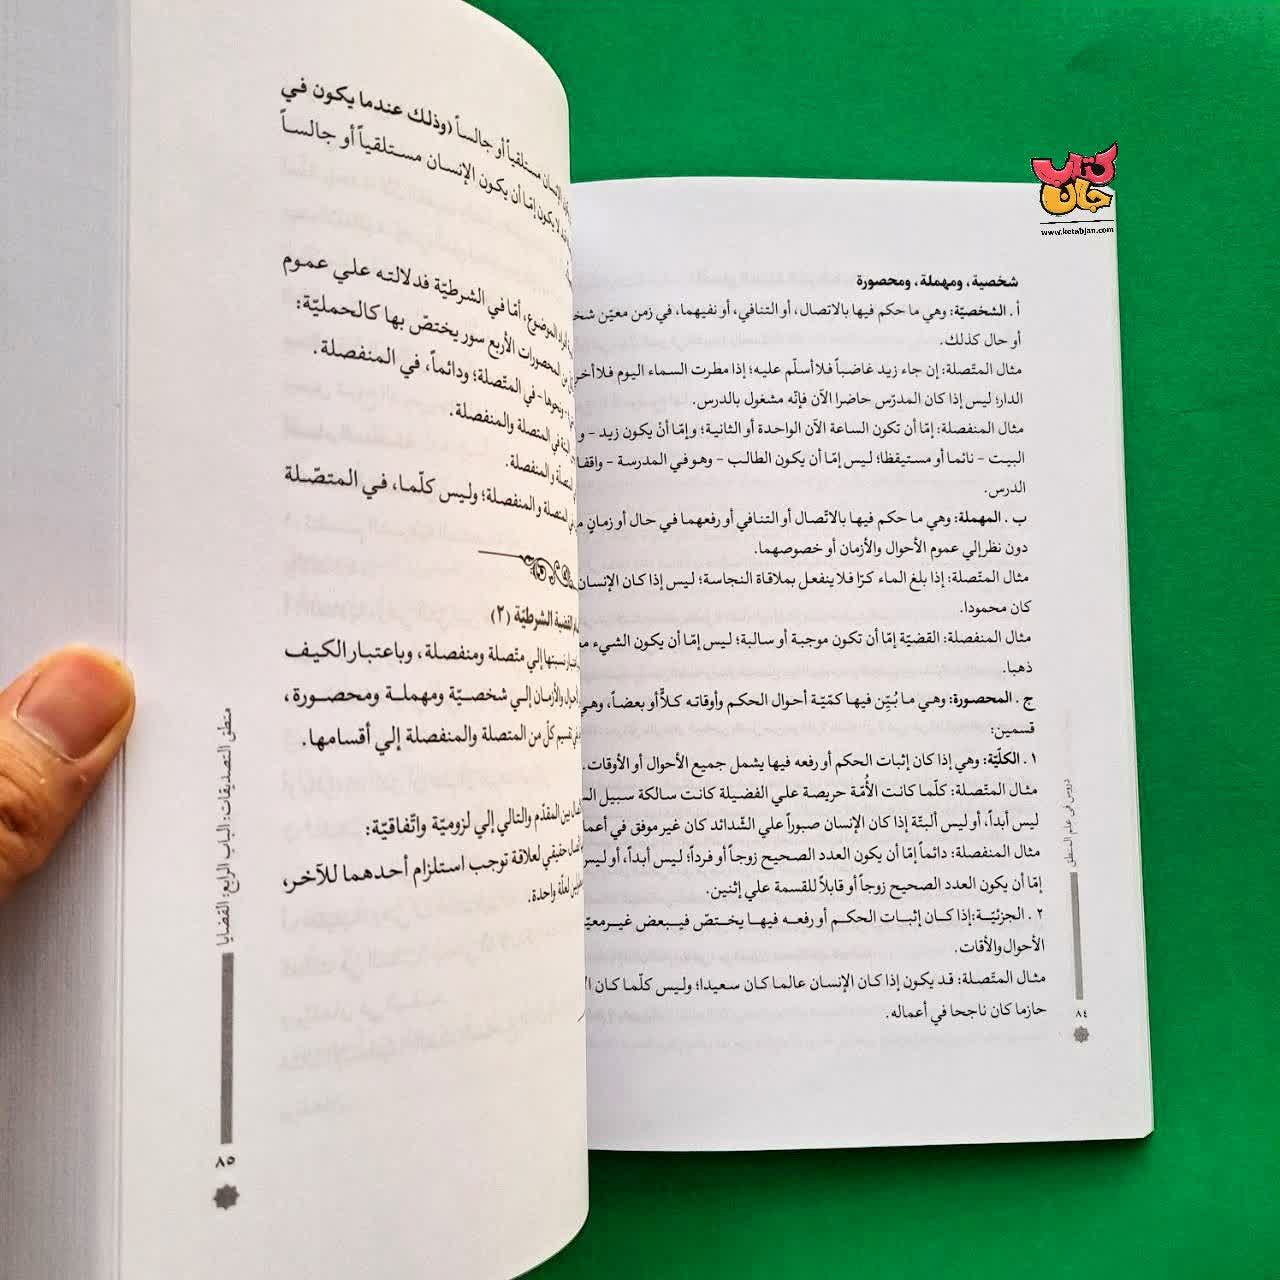 كتاب جان
www.ketabjan.com
شخصية، ومهملة، ومحصورة
أ . الشخصيّة: وهي ما حكم فيها بالاتصال، أو التنافي، أو نفيهما، في زمن معيّن
أو حال كذلك.
مثال المتّصلة: إن جاء زيد غاضباً فلا أسلّم عليه؛ إذا مطرت السماء اليوم
الدار؛ ليس إذا كان المدرّس حاضرا الآن فإنّه مشغول بالدرس.
مثال المنفصلة: إمّا أن تكون الساعة الآن الواحدة أو الثانية؛ وإمّا أنْ يكون زيد -
البيت - نائما أو مستيقظا؛ ليس إمّا أن يكون الطالب - وهو في المدرسة -
الدرس.
ب . المهملة: وهي ما حكم فيها بالاتّصال أو التنافي أو رفعهما في حال أو زمانٍ
دون نظر إلي عموم الأحوال والأزمان أو خصوصهما.
مثال المتّصلة: إذا بلغ الماء كرّا فلا ينفعل بملاقاة النجاسة؛ ليس إذا كان الإنسان
كان محمودا.
مثال المنفصلة: القضيّة إمّا أن تكون موجبة أو سالبة؛ ليس إمّا أن يكون الشيء
ذهبا.
ج . المحصورة: وهي ما بُيِّن فيها كمّيّة أحوال الحكم وأوقاته كلاًّ أو بعضاً،
قسمين:
١ . الكلّيّة: وهي إذا كان إثبات الحكم أو رفعه فيها يشمل جميع الأحوال أو الأوقات.
مثال المتّصلة: كلّما كانت الأُمّة حريصة علي الفضيلة كانت سالكة سبيل
ليس أبداً، أو ليس ألبتّة إذا كان الإنسان صبوراً علي الشّدائد كان غير موفق في
مثال المنفصلة: دائماً إمّا أن يكون العدد الصحيح زوجاً أو فرداً؛ ليس أبداً، أو ليس
إمّا أن يكون العدد الصحيح زوجاً أو قابلاً للقسمة علي إثنين.
٢ . الجزئيّة: إذا كـان إثبـات الحكـم أو رفعـه فيهـا يختـصّ فيـبعض
الأحوال والأقات.
مثال المتّصلة: قد يكون إذا كان الإنسان عالما كان سعيدا؛ وليس كلّما كان
حازما كان ناجحا في أعماله.
دروس في علم المنطق
٨٤
مستلقياً أو جالساً (وذلك عندما يكون في
لا يكون إمّا أن يكون الإنسان مستلقياً أو جالساً
الموضوع، أمّا في الشرطيّة فدلالته علي عموم
المحصورات الأربع سور يختصّ بها كالحمليّة:
ونحوها - في المتّصلة؛ ودائماً، في المنفصلة.
في المتصلة والمنفصلة.
والمنفصلة.
والمنفصلة؛ وليس كلّما، في المتصّلة
القضية الشرطيّة (٢)
نسبتها إلي متّصلة ومنفصلة، وباعتبار الكيف
والأزمان إلـي شخصيّة ومهملـة ومحصـورة،
تقسيم كلّ من المتصلة والمنفصلة إلي أقسامها.
بين المقدّم والتالي إلي لزوميّة واتّفاقيّة:
حقيقي لعلاقة توجب استلزام أحدهما للآخر،
لعلّة واحدة.
منطق التصديقات: الباب الرابع: القضايا
٨٥